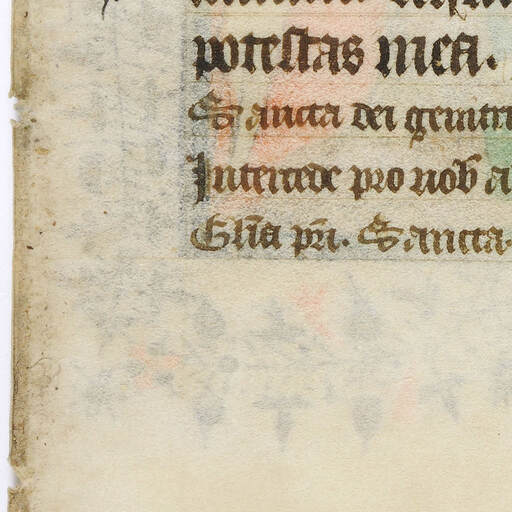 potestas mea.
Sancta dei genitri
Intercede pro nob̄ a
Gl̄ia pr̄i. Sancta.